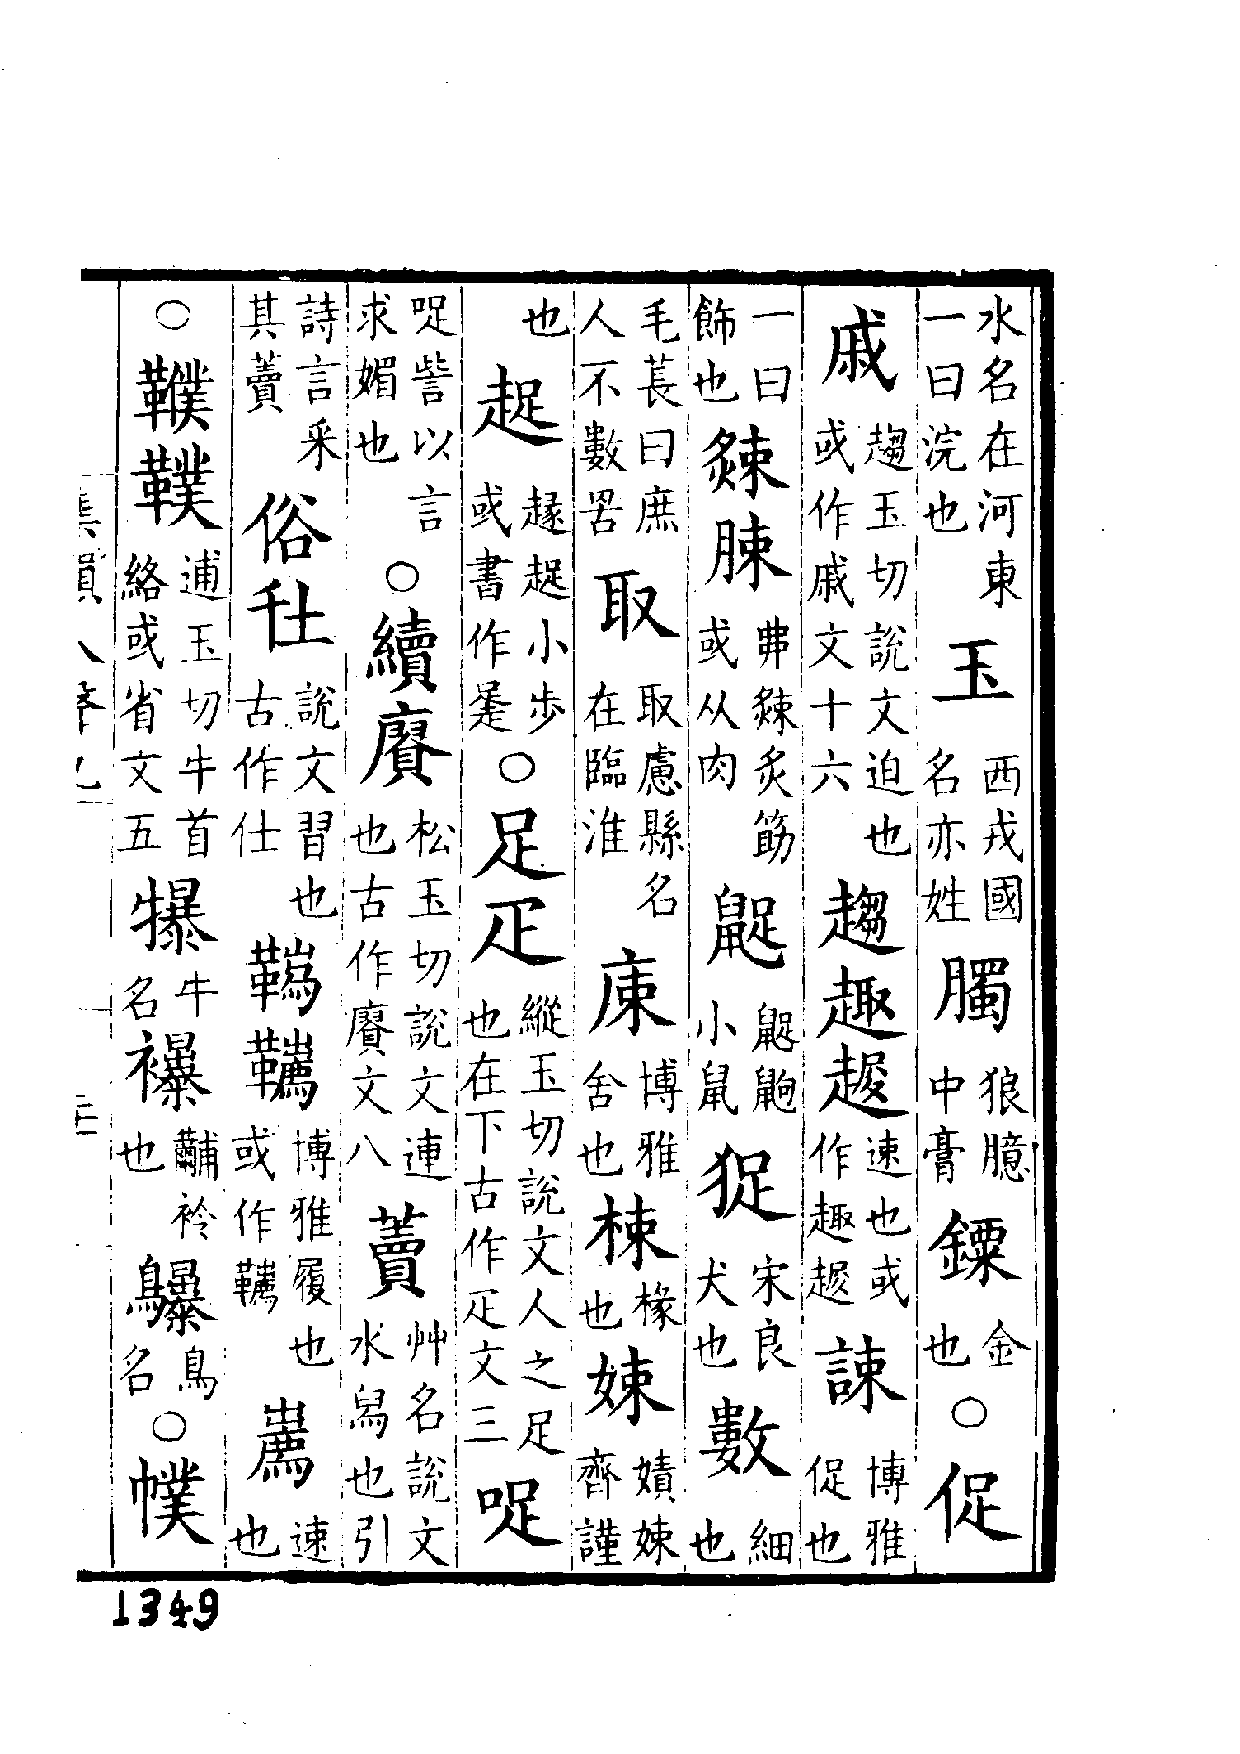 水名在河東一曰浣也玉西戎國名亦姓臅狼臆中膏鏁金也○促
戚趨玉切說文迫也或作戚文十六趨趣趗速也或作趣趗諫博雅促也
一曰飾也𤊶脨弗𤊶炙筋或从肉䶂䶂鼩小鼠捉宋良犬也數細也
毛萇曰庶人不數罟取取慮縣名在臨淮𢈘博雅舍也梀椽也娕嫧娕齊謹
也趗趢趗小步或書作疐○足疋縱玉切說文人之足也在下古作疋文三哫
哫訾以言求媚也○續賡松玉切說文連也古作賡文八藚艸名說文水舄也引
詩言采其藚俗𡉞說文習也古作仕䩻韀博雅履也或作韀䳾速也
○䪁鞪逋玉切牛首絡或省文五犦牛名襮黼衿也䴝鳥名○幞
集韻入聲九
1349